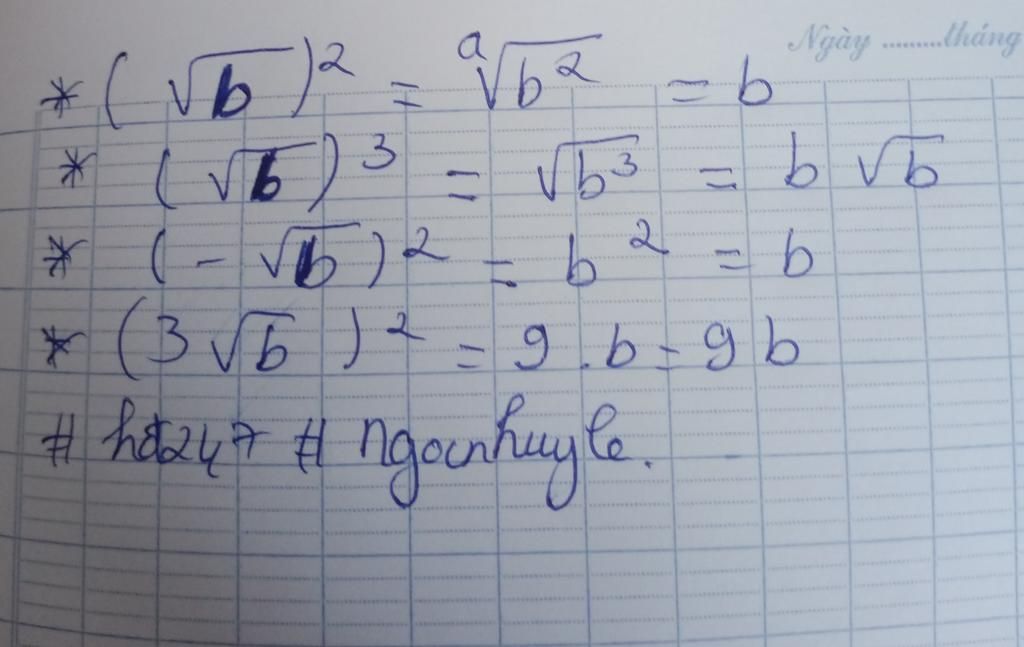 Ngày .........tháng
* (√b)² = ᵃ√b² = b
* (√b)³ = √b³ = b √b
* (- √b)² = b² = b
* (3 √b)² = 9 . b = 9 b
# hd247 # ngocnhuyle.